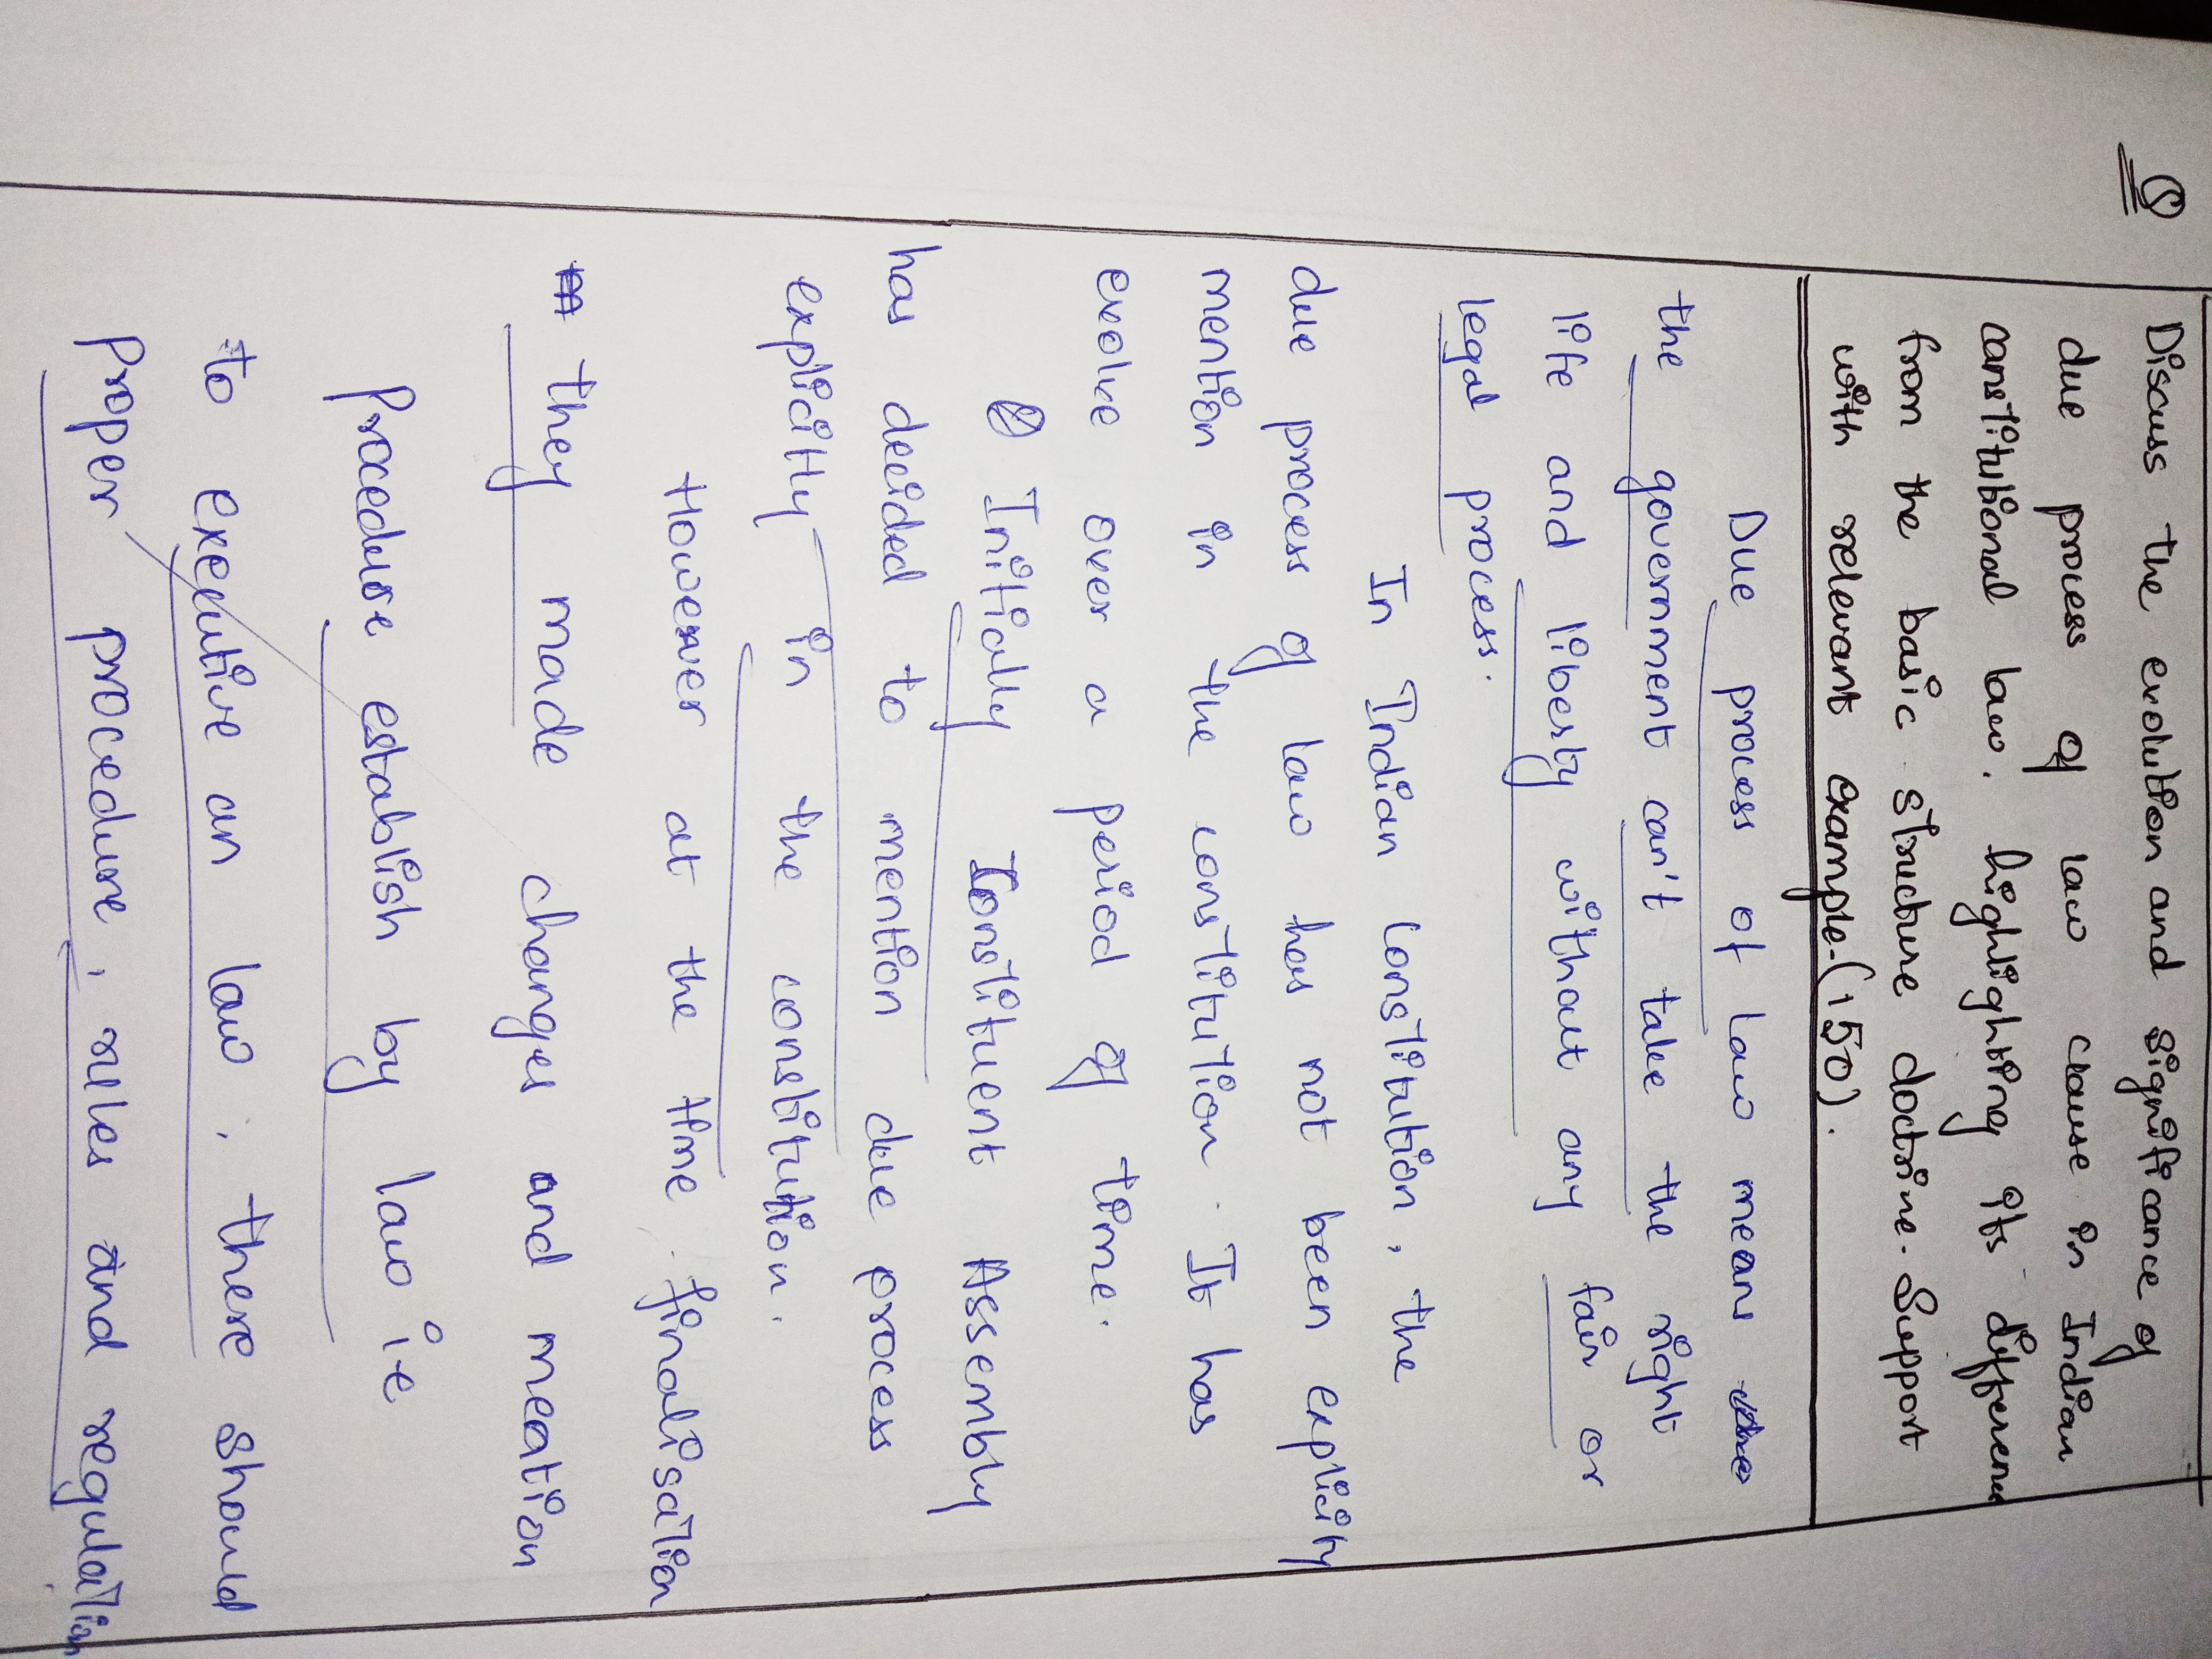 Q
Discuss the evolution and significance of
due process of law clause in Indian
constitutional law, highlighting its difference
from the basic structure doctrine. Support
with relevant example. (150).
Due process of law means
the government can't take the right
life and liberty without any fair or
legal process.
In Indian Constitution, the
due process of law has not been explicity
mention in the constitution. It has
evolve over a period of time.
Initically Constituent Assembly
has decided to mention due process
explicitly in the constitution.
However at the time finalisation
they made changes and meation
Procedure establish by law i.e
to executive an law, there should
proper procedure, rules and regulation